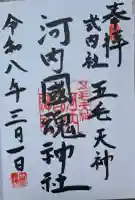 奉拝
式内社 五毛天神
河内國魂神社
令和八年三月一日